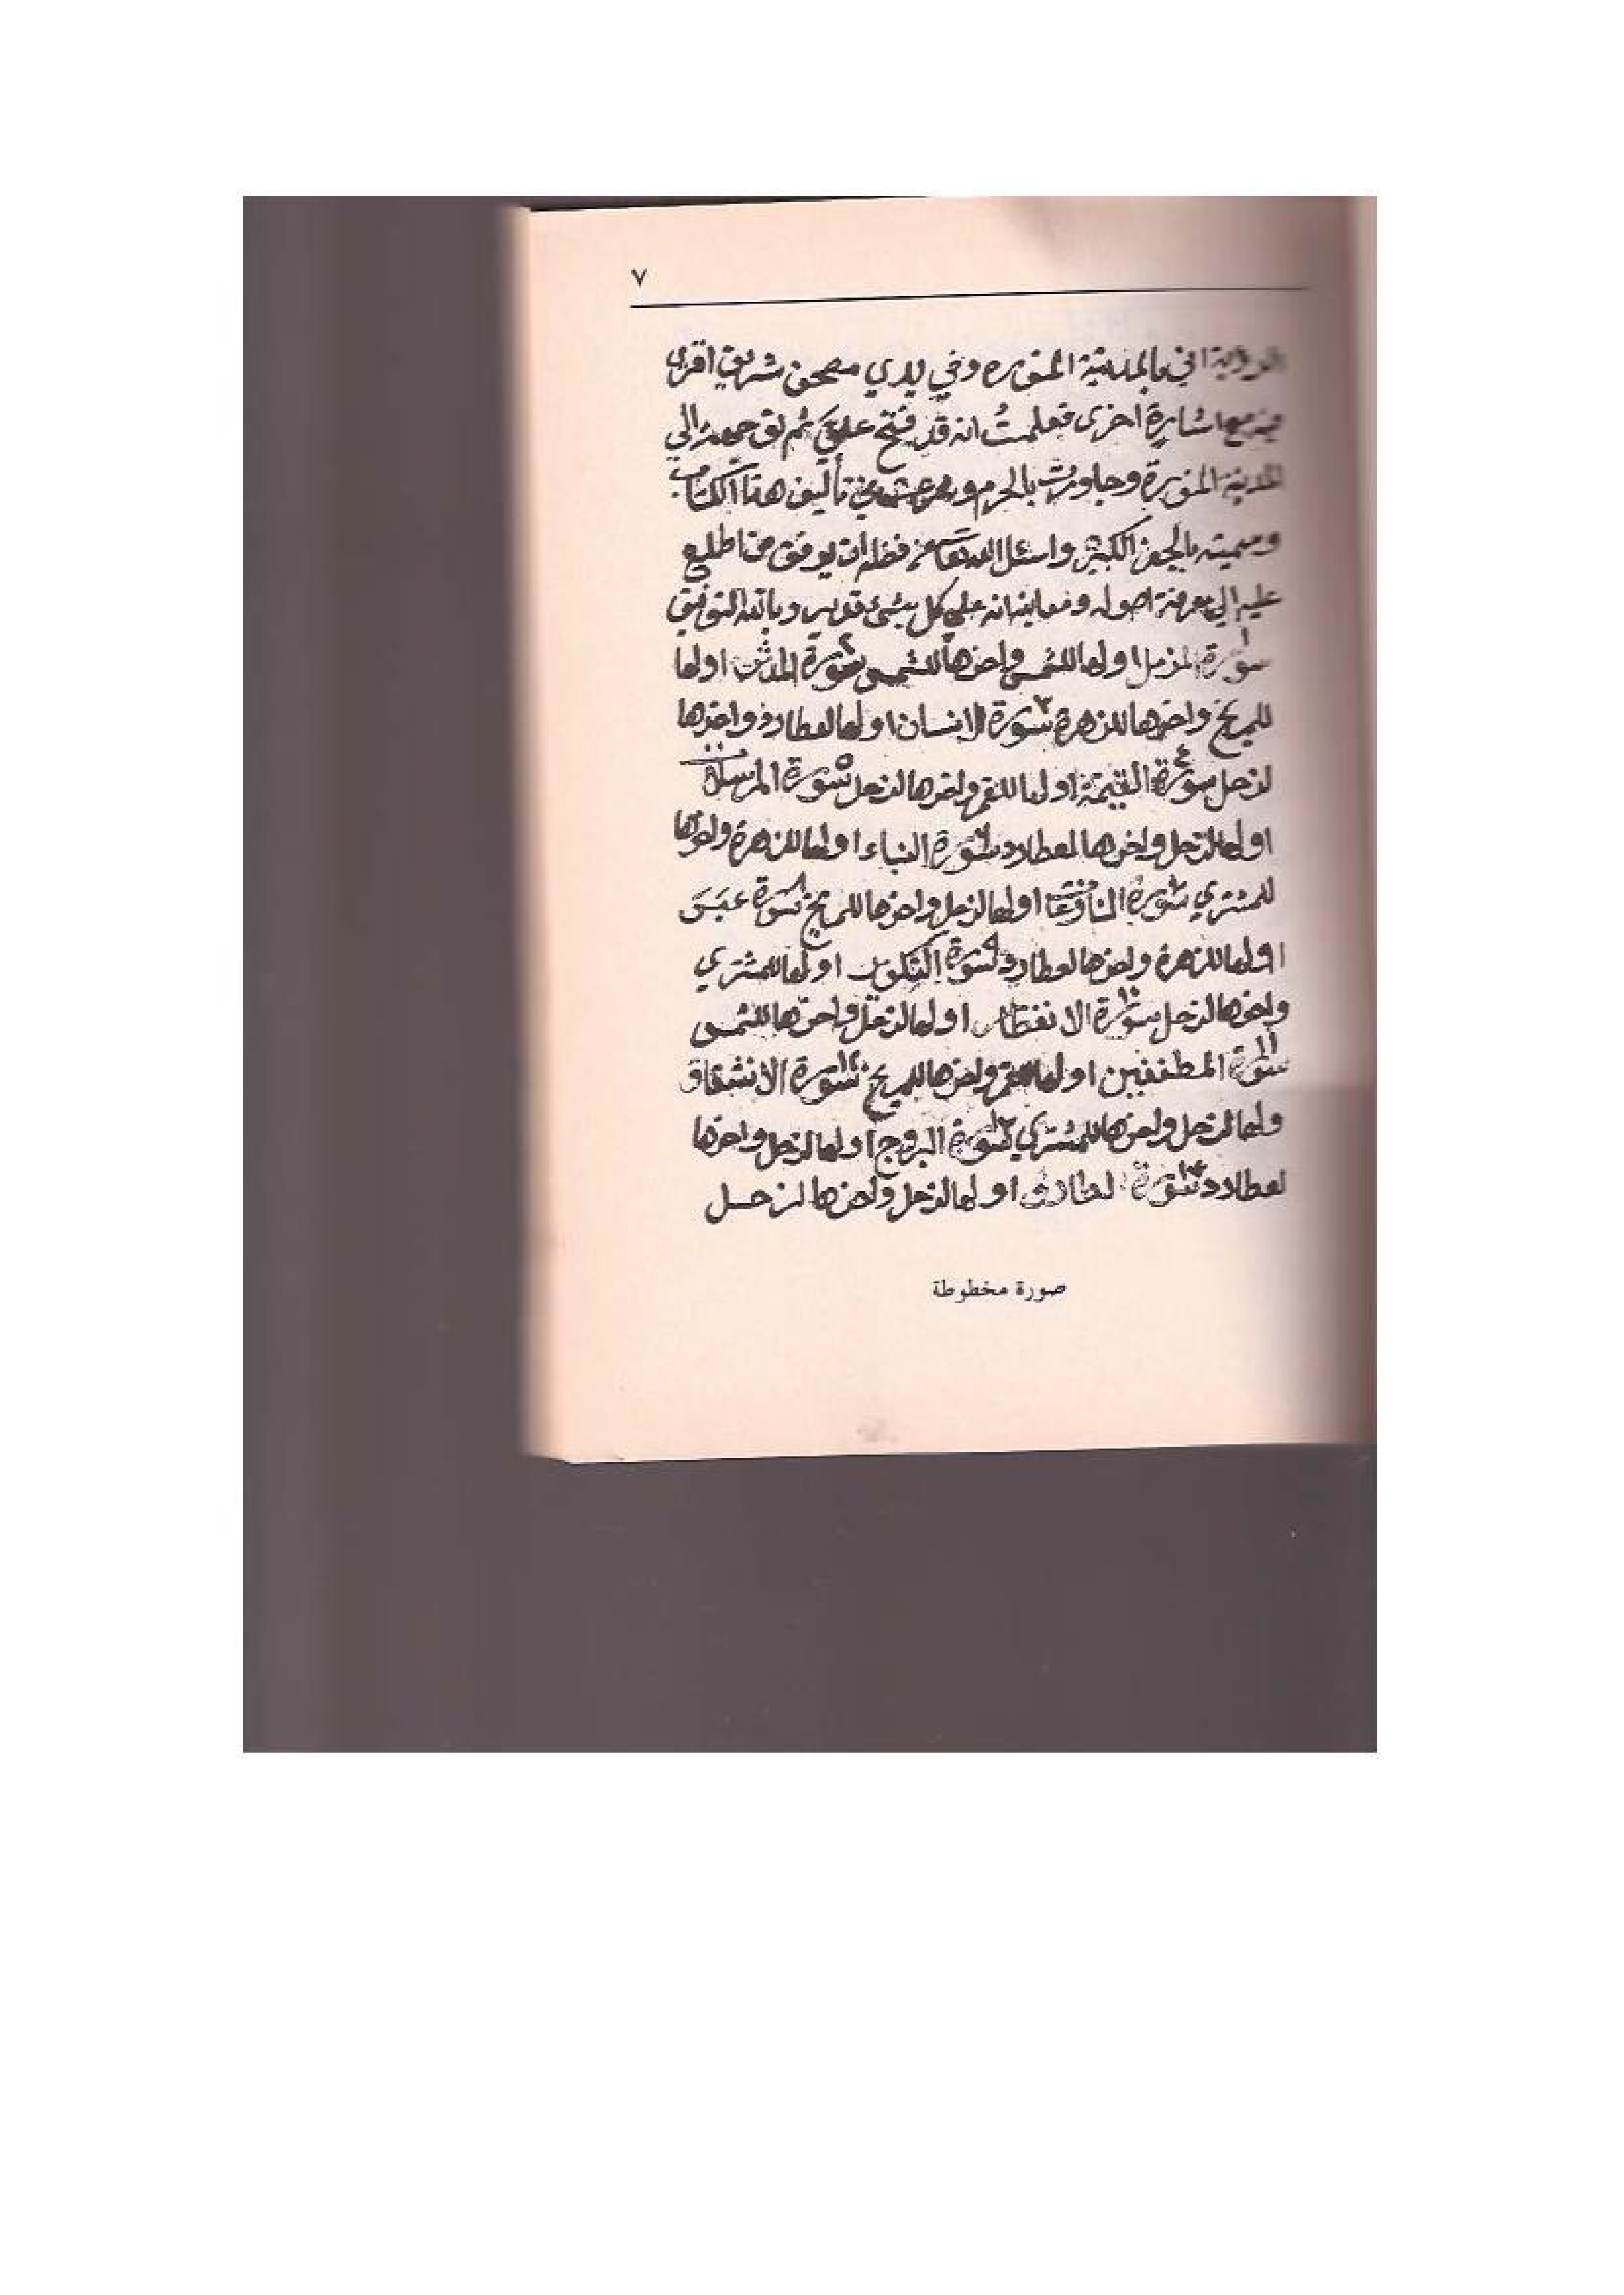 ٧
الرؤية اني بالمدينة المنوره وفي يدي مصحف شريف اقرى
فيه مع اشارة اخرى فعلمتُ انه قد فتح علي ثم توجهت الي
المدينة المنورة وجاورت بالحرم وشرعت في تأليف هذا الكتاب
وسميته بالجفر الكبير واسئل الله تعا من فضله ان يوفق من اطلع
عليه الي معرفة اصوله ومعاينه انه علي كل شيئ قدير وبالله التوفيق
سورة ١ المزمل اولها للشمس واخرها للشمس سورة ٢ المدثر اولها
للمريخ واخرها للزهرة سورة ٣ الانسان اولها لعطارد واخرها
لزحل سورة ٤ القيمة اولها للقمر واخرها لزحل سورة ٥ المرسلات
اولها لزحل واخرها لعطارد سورة ٦ النباء اولها للزهرة واخرها
للمشتري سورة ٧ النازعات اولها لزحل واخرها للمريخ سورة ٨ عبسَ
اولها للزهرة واخرها لعطارد سورة ٩ التكوير اولها للمشتري
واخرها لزحل سورة ١٠ الانفطار اولها لزحل واخرها للشمس
سورة ١١ المطففين اولها للقمر واخرها للمريخ سورة ١٢ الانشقاق
ولها لزحل واخرها للمشتري سورة ١٣ البروج اولها لزحل واخرها
لعطارد سورة ١٤ الطارق اولها لزحل واخرها لزحل
صورة مخطوطة